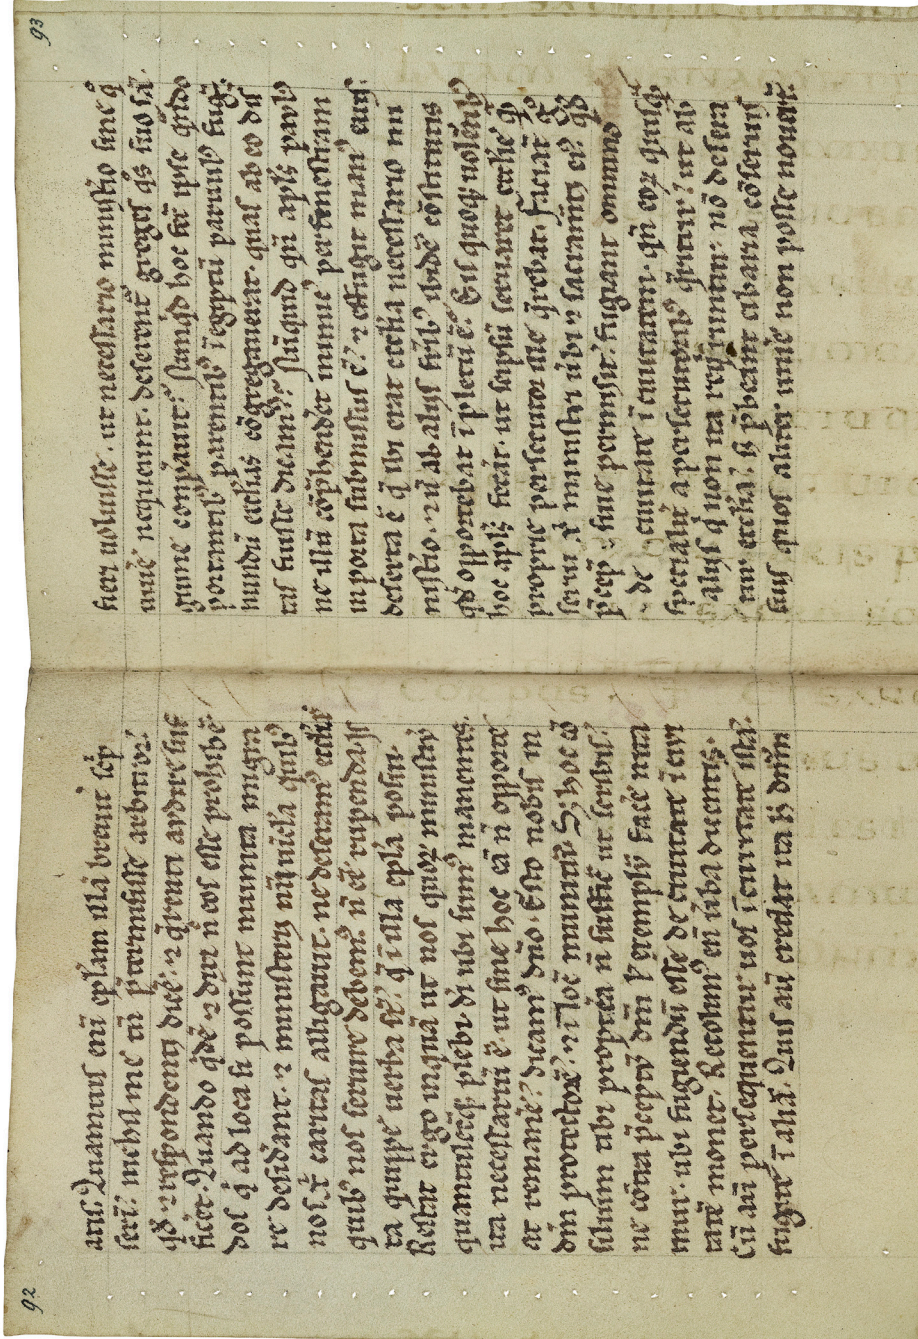 92
atis. Quamuis eni̅ epl̅am illã breuit̉ sc̅p
serĩ? mchil me tñ p̃termisisse arbitror.
qd̉ ⁊ respondenti dicẽ. ⁊ q̃renti audire suf
ficẽt. Quando qdẽ ⁊ dixi ñ eos esse prohibẽ
dos qͥ ad loca si possunt munita migra
re desid̃ant. ⁊ ministerij nr̃i uĩcl̃a quibꝰ
nos xp̃i caritas alligauit. ne deseramꝰ ecclias
quibꝰ nos seruire debemꝰ. ñ eẽ rupenda. Is
ta quippe uerba st̃. q̃ ĩ illa epl̃a posui.
Restat ergo inquã ut nos quorꝫ ministiũ
quantulecũqꝫ plebi. di ubi sumꝰ manentis.
ita necessariũ ẽ. ut sine hoc eã ñ oppore
at remanẽ? dicamꝰ dñO. Esto nobis in
dm̃ protectorẽ. ⁊ ĩ locũ munitũ. Sꝫ hoc cõ
silium tibi proptẽa ñ sufficit ut scribis.
ne cõtra p̃ceptũ dñi l' exemplũ facẽ nita
mur. ubi fugiendũ esse de ciuitate ĩ ciui
tatẽ monet. Recolimꝰ eni̅ ũba dicentis.
Cũ aũt persequentur uos ĩ ciuitate ista.
fugite ĩ aliã. Quis aũt credat ita ħ dñm
93
fieri uoluisse. ut necessario ministio sine qͦ
uiuẽ nequeunt. deserent̃ greges qͦs suo sã
guine comp̃auit? Nunqͥd hoc fecit ipse qñdo
portantibꝰ parentibꝰ ĩ egiptũ paruulꝰ fugit?
nundũ ecclias cõgregauerat. quas ab eo dis
tas fuisse dicamꝰ? Nũquid qñ apl̃s paulꝰ
ne illũ cõp̃henderet inimicꝰ per fenestram
in porta submissus ẽ? ⁊ effugit manꝰ eius.
deserta ẽ q̃ ibi erat ecclia necessario mi
nistio. ⁊ ñ ab aliis frĩbꝰ ibidẽ cõstitutis
qd̉ opportebat ĩpletũ ẽ? Eis quoqꝫ uolẽtibꝰ
hoc apl̃s fecãt. ut seipsũ seruaret ecclie qͣ̃
proprie persecutor ille q̃rebat. Faciãt gͦ
serui xp̃i ministri ũbi ⁊ sacramti eiꝰ qd̉
p̃cep̃ siue permisit. fugiant omnino
de ciuitate ĩ ciuitatem. qñ eorꝫ quisqꝫ
specialit̃ a persecutoribꝰ q̃ritur? ut ab
aliis qui non ita requirũtur. nõ desera
tur ecclia? sꝫ p̃beant cibaria cõseruis
suis quos aliter uiuẽ non posse nouerũt.